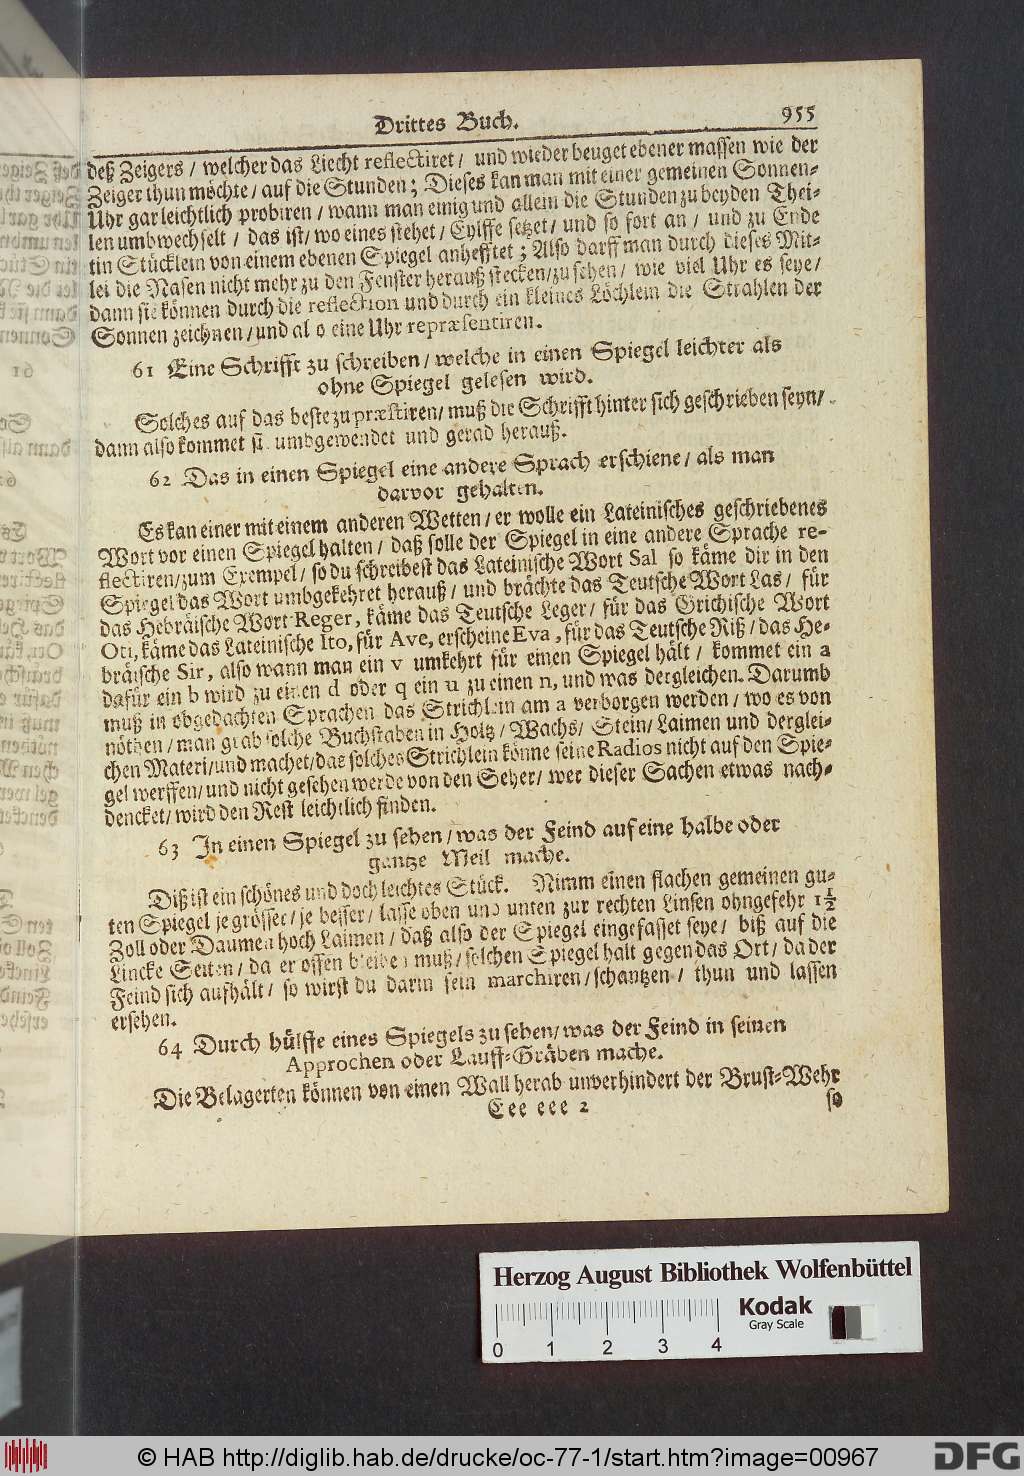 Drittes Buch. 955
deß Zeigers / welcher das Liecht reflectiret / und wieder beuget ebener massen wie der
Zeiger thun möchte / auf die Stunden; Dieses kan man mit einer gemeinen Sonnen-
Uhr gar leichtlich probiren / wann man einig und allein die Stunden zu beyden Thei-
len umbwechselt / das ist / wo eines stehet / Eylffe setzet / und so fort an / und zu Ende
tin Stücklein von einem ebenen Spiegel anhefftet; Also darff man durch dieses Mit-
lei die Nasen nicht mehr zu den Fenster herauß stecken / zu sehen / wie viel Uhr es seye /
dann sie können durch die reflection und durch ein kleines Löchlein die Strahlen der
Sonnen zeichnen / und al o eine Uhr repræsentiren.
61 Eine Schrifft zu schreiben / welche in einen Spiegel leichter als
ohne Spiegel gelesen wird.
Solches auf das beste zu præstiren / muß die Schrifft hinter sich geschrieben seyn /
dann also kommet si umbgewendet und gerad herauß.
62 Das in einen Spiegel eine andere Sprach erschiene / als man
darvor gehalten.
Es kan einer mit einem anderen Wetten / er wolle ein Lateinisches geschriebenes
Wort vor einen Spiegel halten / daß solle der Spiegel in eine andere Sprache re-
flectiren / zum Exempel / so du schreibest das Lateinische Wort Sal so käme dir in den
Spiegel das Wort umbgekehret herauß / und brächte das Teutsche Wort Las / für
das Hebräische Wort Reger, käme das Teutsche Leger / für das Grichische Wort
Oti, käme das Lateinische Ito, für Ave, erscheine Eva, für das Teutsche Riß / das He-
bräische Sir, also wann man ein v umkehrt für einen Spiegel hält / kommet ein a
dafür ein b wird zu einen d oder q ein u zu einen n, und was dergleichen. Darumb
muß in obgedachten Sprachen das Strichlein am a verborgen werden / wo es von
nöthen / man grab solche Buchstaben in Holtz / Wachs / Stein / Laimen und derglei-
chen Materi / und machet / das solches Strichlein könne seine Radios nicht auf den Spie-
gel werffen / und nicht gesehen werde von den Seher / wer dieser Sachen etwas nach-
dencket / wird den Rest leichtlich finden.
63 In einen Spiegel zu sehen / was der Feind auf eine halbe oder
gantze Meil mache.
Diß ist ein schönes und doch leichtes Stück. Nimm einen flachen gemeinen gu-
ten Spiegel je grösser / je besser / lasse oben und unten zur rechten Linsen ohngefehr 1½
Zoll oder Daumen hoch Laimen / daß also der Spiegel eingefasset seye / biß auf die
Lincke Seiten / da er offen bleiben muß / solchen Spiegel halt gegen das Ort / da der
Feind sich aufhält / so wirst du darin sein marchiren / schantzen / thun und lassen
ersehen.
64 Durch hülffe eines Spiegels zu sehen / was der Feind in seinen
Approchen oder Lauff-Gräben mache.
Die Belagerten können von einen Wall herab unverhindert der Brust-Wehr
Eee eee 2 so
Herzog August Bibliothek Wolfenbüttel
Kodak
Gray Scale
0 1 2 3 4
© HAB http://diglib.hab.de/drucke/oc-77-1/start.htm?image=00967
DFG